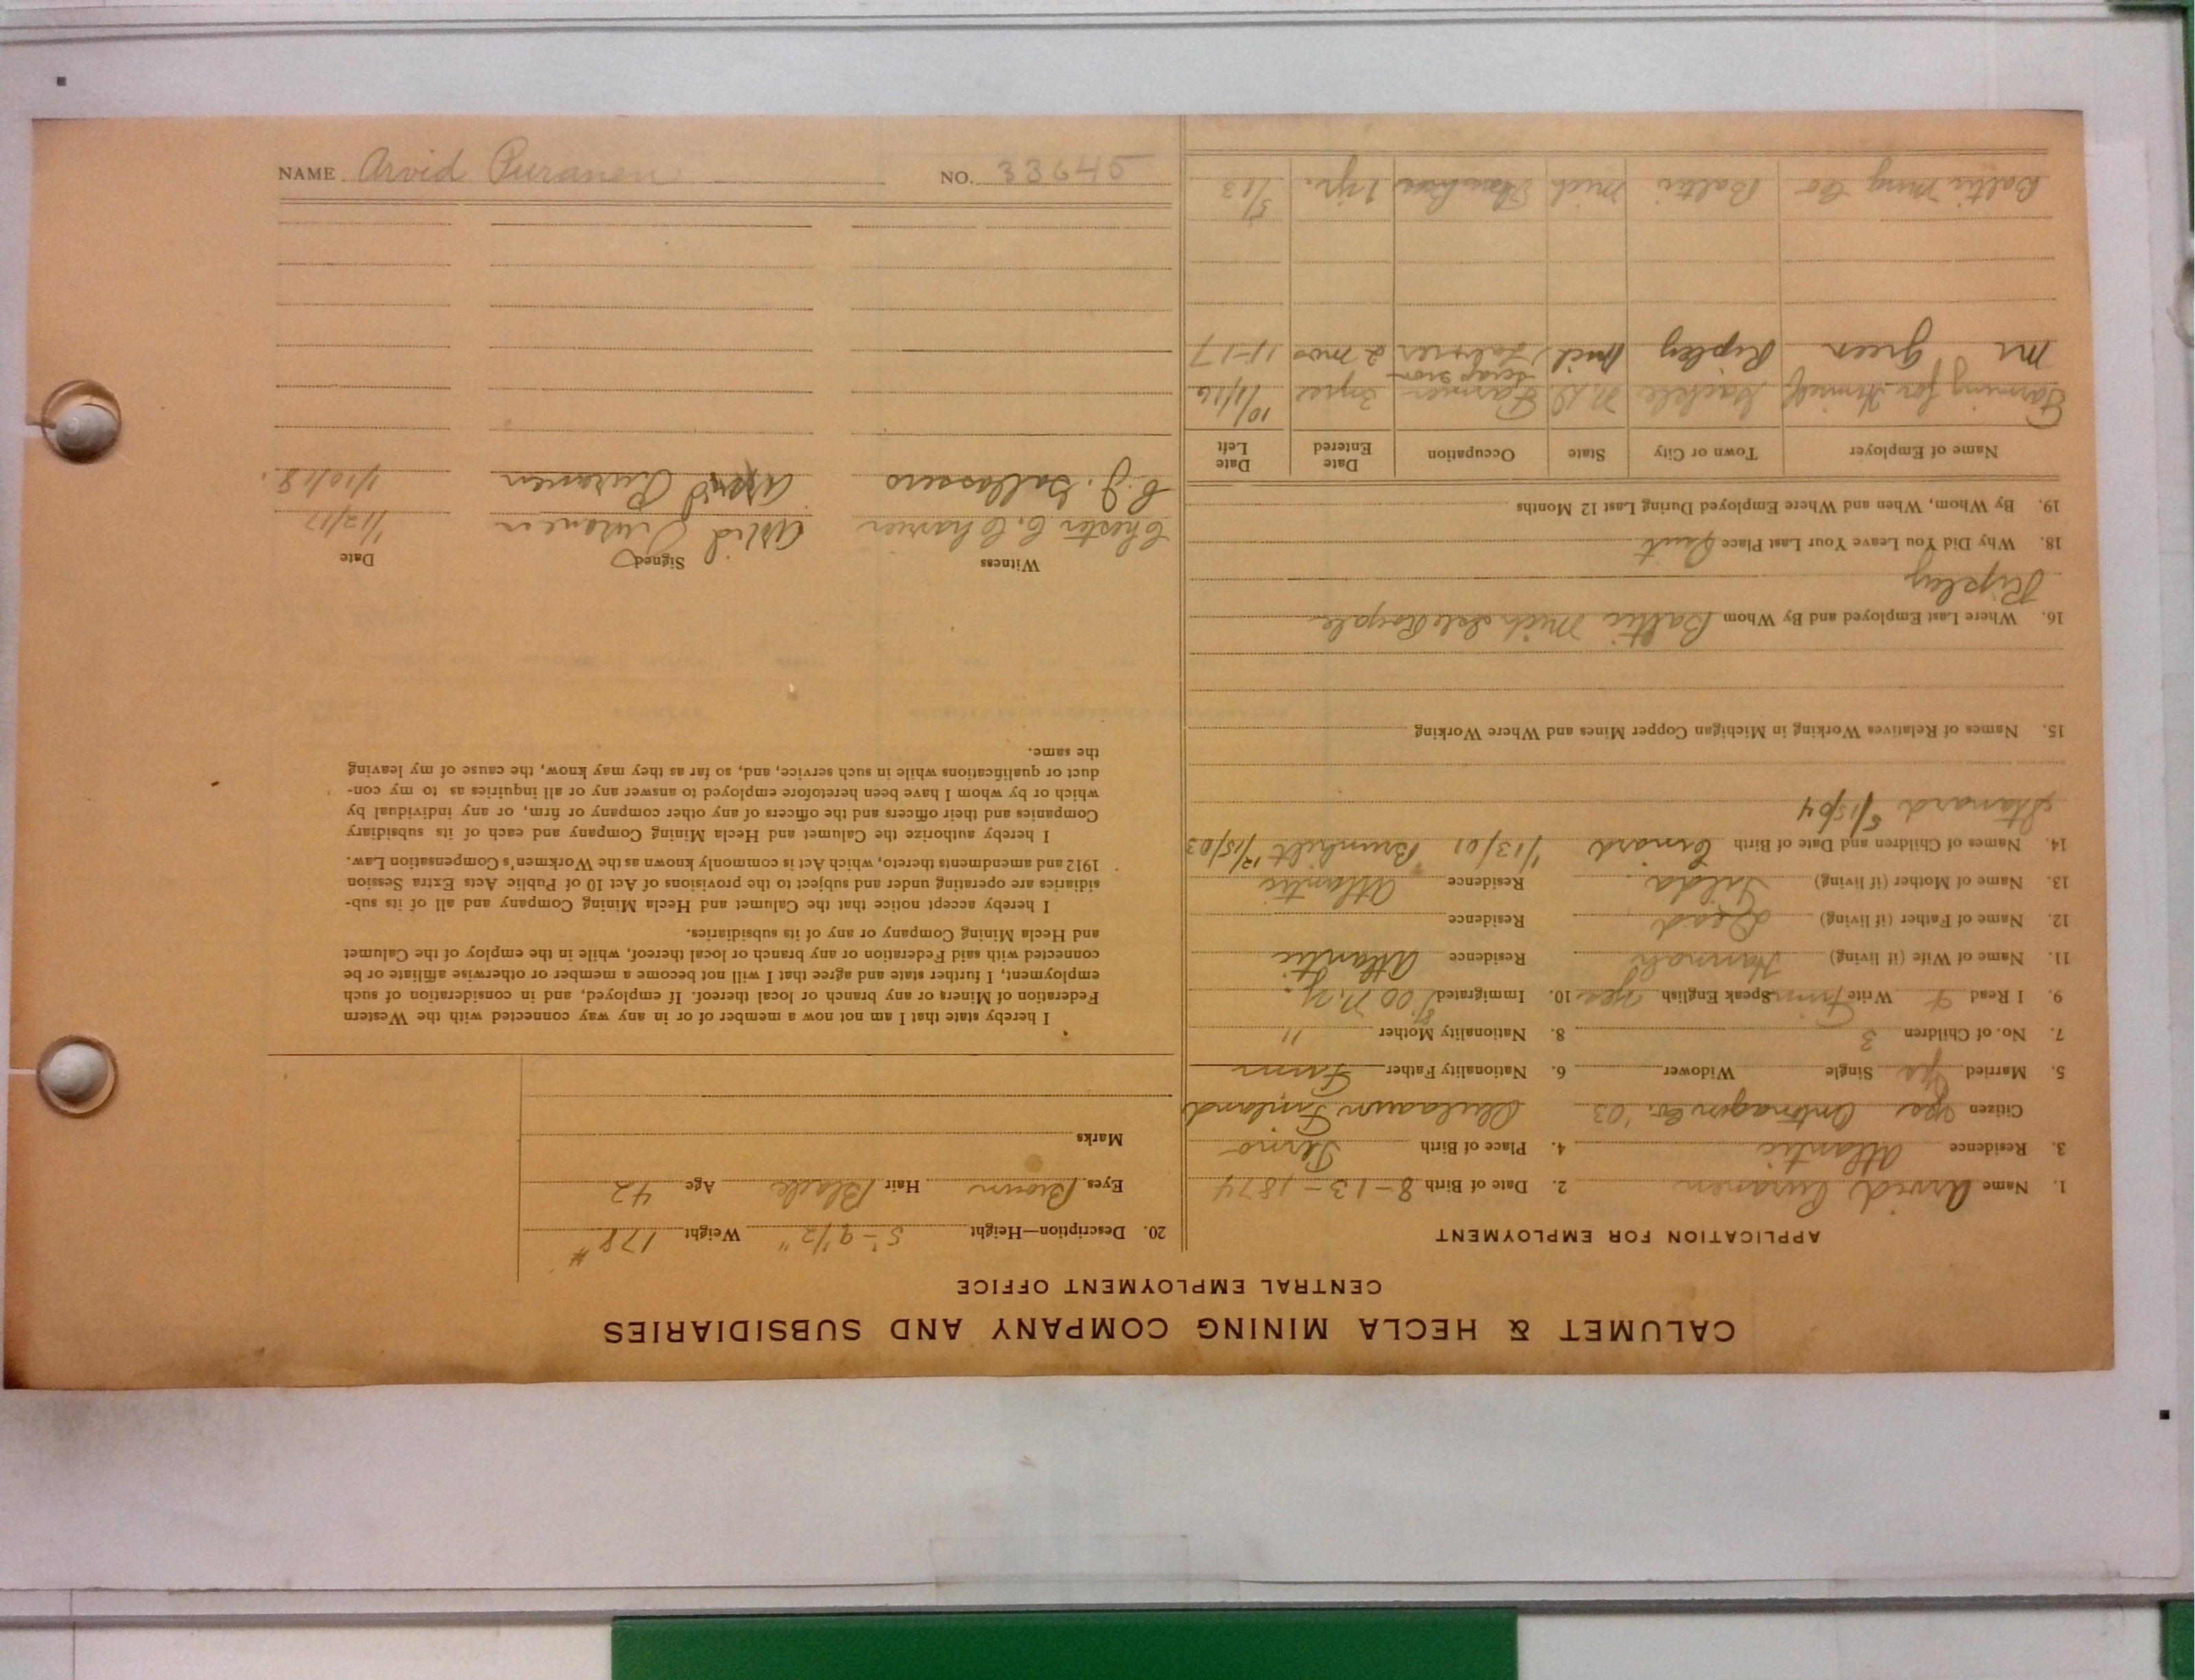 CALUMET & HECLA MINING COMPANY AND SUBSIDIARIES
CENTRAL EMPLOYMENT OFFICE
APPLICATION FOR EMPLOYMENT
1. Name Arvid Puranen 2. Date of Birth 8-13-1874
3. Residence Atlantic 4. Place of Birth
Citizen yes Ontonagon Co. '03 Finland
5. Married yes Single Widower 6. Nationality Father Finn
7. No. of Children 3 8. Nationality Mother 11
9. I Read & Write Finn Speak English yes 10. Immigrated '00 N.Y.
11. Name of Wife (if living) Hannah Residence Atlantic
12. Name of Father (if living) Dead Residence
13. Name of Mother (if living) Residence Atlantic
14. Names of Children and Date of Birth 1/13/01 Brunhilt 12/15/03
5/15/04
15. Names of Relatives Working in Michigan Copper Mines and Where Working
16. Where Last Employed and By Whom Baltic Mich Isle Royale
Ripley
18. Why Did You Leave Your Last Place Quit
19. By Whom, When and Where Employed During Last 12 Months
Name of Employer Town or City State Occupation Date Entered Date Left
Farming for Himself N.D. Farmer 3 yrs 10/1/16
Mr Green Ripley Mich Scrap Iron Laborer 2 mos 11-17
Baltic Mng Co Baltic Mich 1 yr. 5/13
20. Description—Height 5'-9 1/2" Weight 178#
Eyes Brown Hair Black Age 42
Marks
I hereby state that I am not now a member of or in any way connected with the Western
Federation of Miners or any branch or local thereof. If employed, and in consideration of such
employment, I further state and agree that I will not become a member or otherwise affiliate or be
connected with said Federation or any branch or local thereof, while in the employ of the Calumet
and Hecla Mining Company or any of its subsidiaries.
I hereby accept notice that the Calumet and Hecla Mining Company and all of its sub-
sidiaries are operating under and subject to the provisions of Act 10 of Public Acts Extra Session
1912 and amendments thereto, which Act is commonly known as the Workmen's Compensation Law.
I hereby authorize the Calumet and Hecla Mining Company and each of its subsidiary
Companies and their officers and the officers of any other company or firm, or any individual by
which or by whom I have been heretofore employed to answer any or all inquiries as to my con-
duct or qualifications while in such service, and, so far as they may know, the cause of my leaving
the same.
Witness Signed Date
Chester C. Charrier Arvid Puranen 1/12/17
Arvid Puranen 1/10/18.
NAME Arvid Puranen NO. 33645